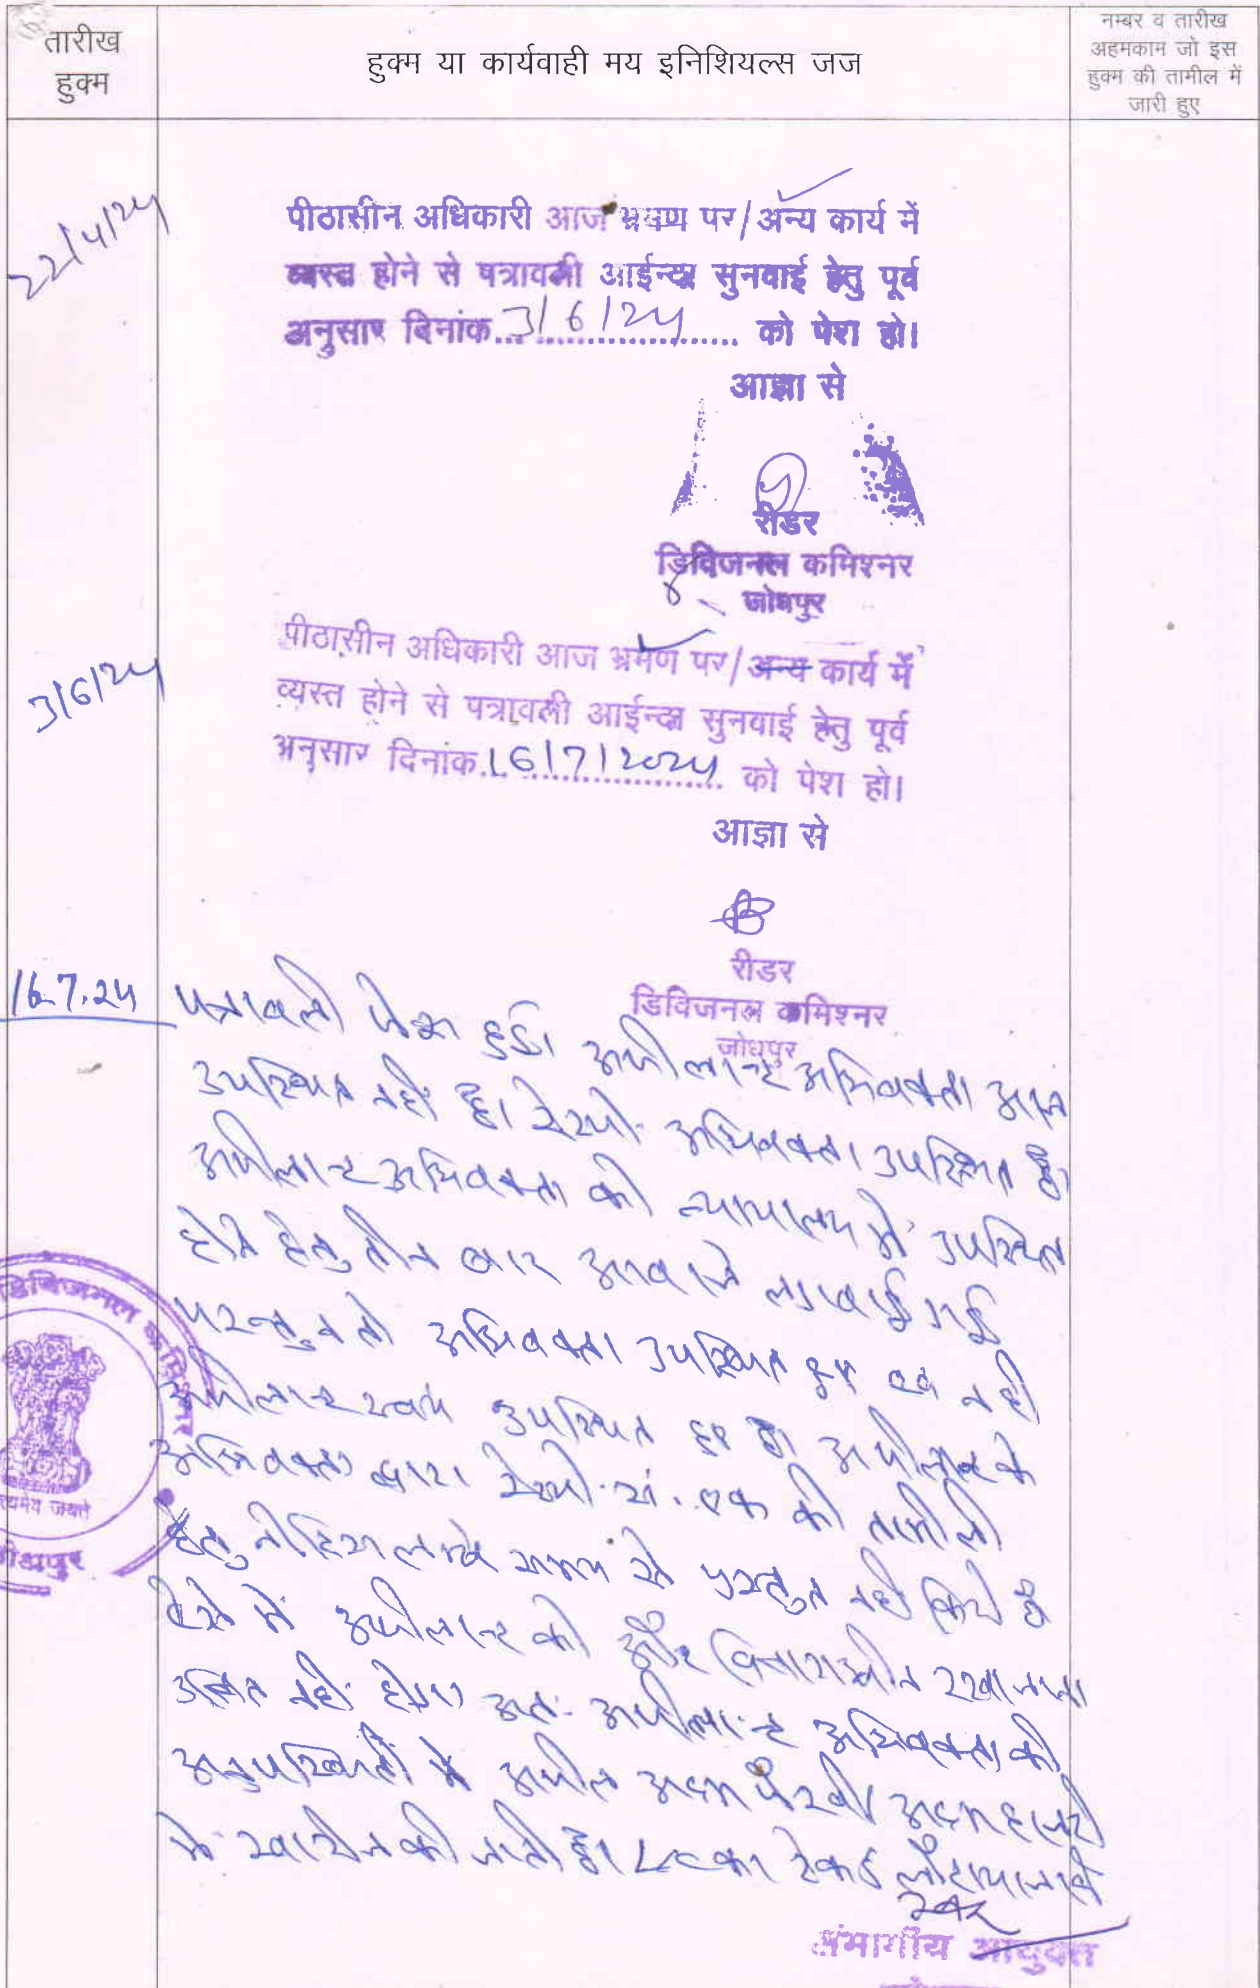 तारीख
हुक्म
हुक्म या कार्यवाही मय इनिशियल्स जज
नम्बर व तारीख
अहमकाम जो इस
हुक्म की तामील में
जारी हुए
22/4/24
पीठासीन अधिकारी आज भ्रमण पर/अन्य कार्य में
व्यस्त होने से पत्रावली आईन्दा सुनवाई हेतु पूर्व
अनुसार दिनांक...3/6/24... को पेश हो।
आज्ञा से
रीडर
डिविजनल कमिश्नर
जोधपुर
3/6/24
पीठासीन अधिकारी आज भ्रमण पर/अन्य कार्य में
व्यस्त होने से पत्रावली आईन्दा सुनवाई हेतु पूर्व
अनुसार दिनांक...16/7/2024... को पेश हो।
आज्ञा से
रीडर
डिविजनल कमिश्नर
जोधपुर
16.7.24
पत्रावली पेश हुई। अपीलान्ट अभिवक्ता आज
उपस्थित नहीं है। रेस्पो. अभिवक्ता उपस्थित है।
अपीलान्ट अभिवक्ता को न्यायालय में उपस्थित
होने हेतु तीन बार आवाजे लगवाई गई
परन्तु न तो अभिवक्ता उपस्थित हुए एवं न ही
अपीलान्ट स्वयं उपस्थित हुए है। अपीलान्ट के
अभिवक्ता द्वारा रेस्पो. सं. एक की तामीली
हेतु नोटिस लम्बे समय से प्रस्तुत नहीं किये है
ऐसे में अपीलान्ट को और विचाराधीन रखा जाना
उचित नहीं होगा अतः अपीलान्ट अभिवक्ता की
अनुपस्थिती में अपील अदम पैरवी/अदम हाजरी
में खारीज की जाती है। LC का रेकर्ड लौटाया जावे
संभागीय आयुक्त
डिविजनल कमिश्नर
सत्यमेव जयते
जोधपुर